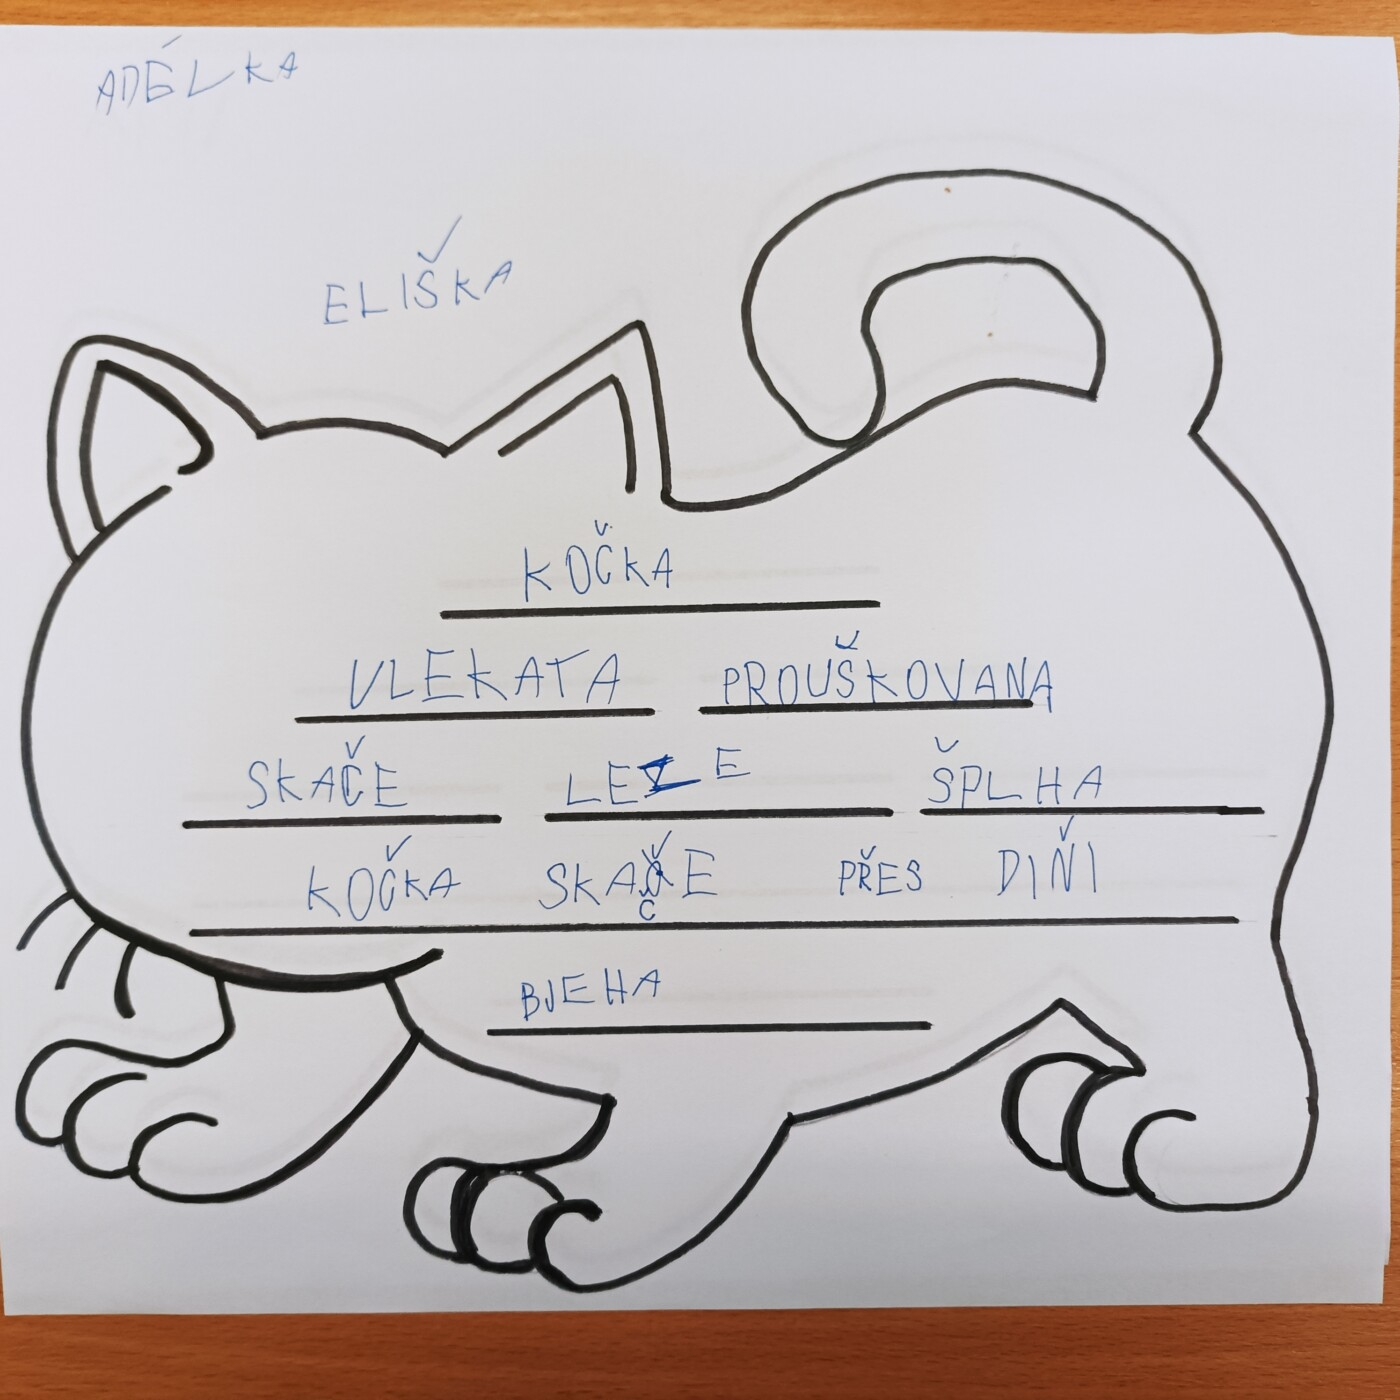 ADÉLKA
ELIŠKA
KOČKA
VLEKATA PROUŠKOVANA
SKAČE LEZE ŠPLHA
KOČKA SKAČE PŘES DIŇI
Č
BJEHA